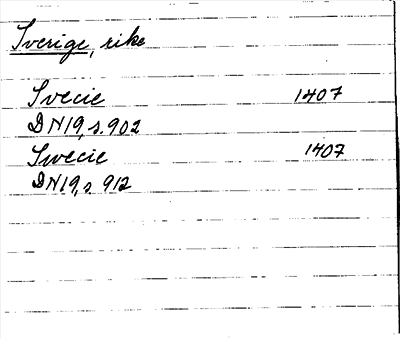 Sverige, rike
Svecie 1407
DN19, s. 902
Swecie 1407
DN19, s 912